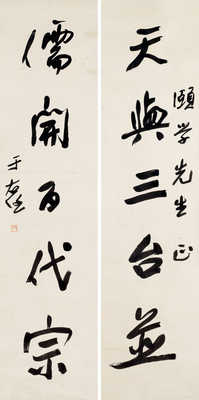 天与三台並
頤学先生正
儒開百代宗
于右任